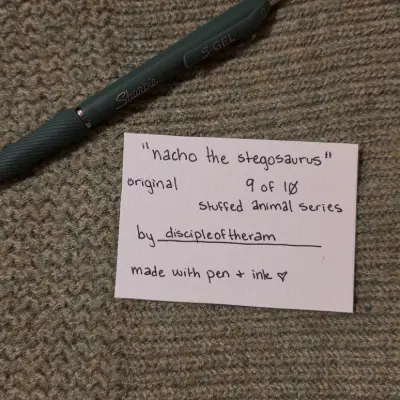 Sharpie
S·GEL
"nacho the stegosaurus"
original 9 of 10
stuffed animal series
by discipleoftheram
made with pen + ink ♡